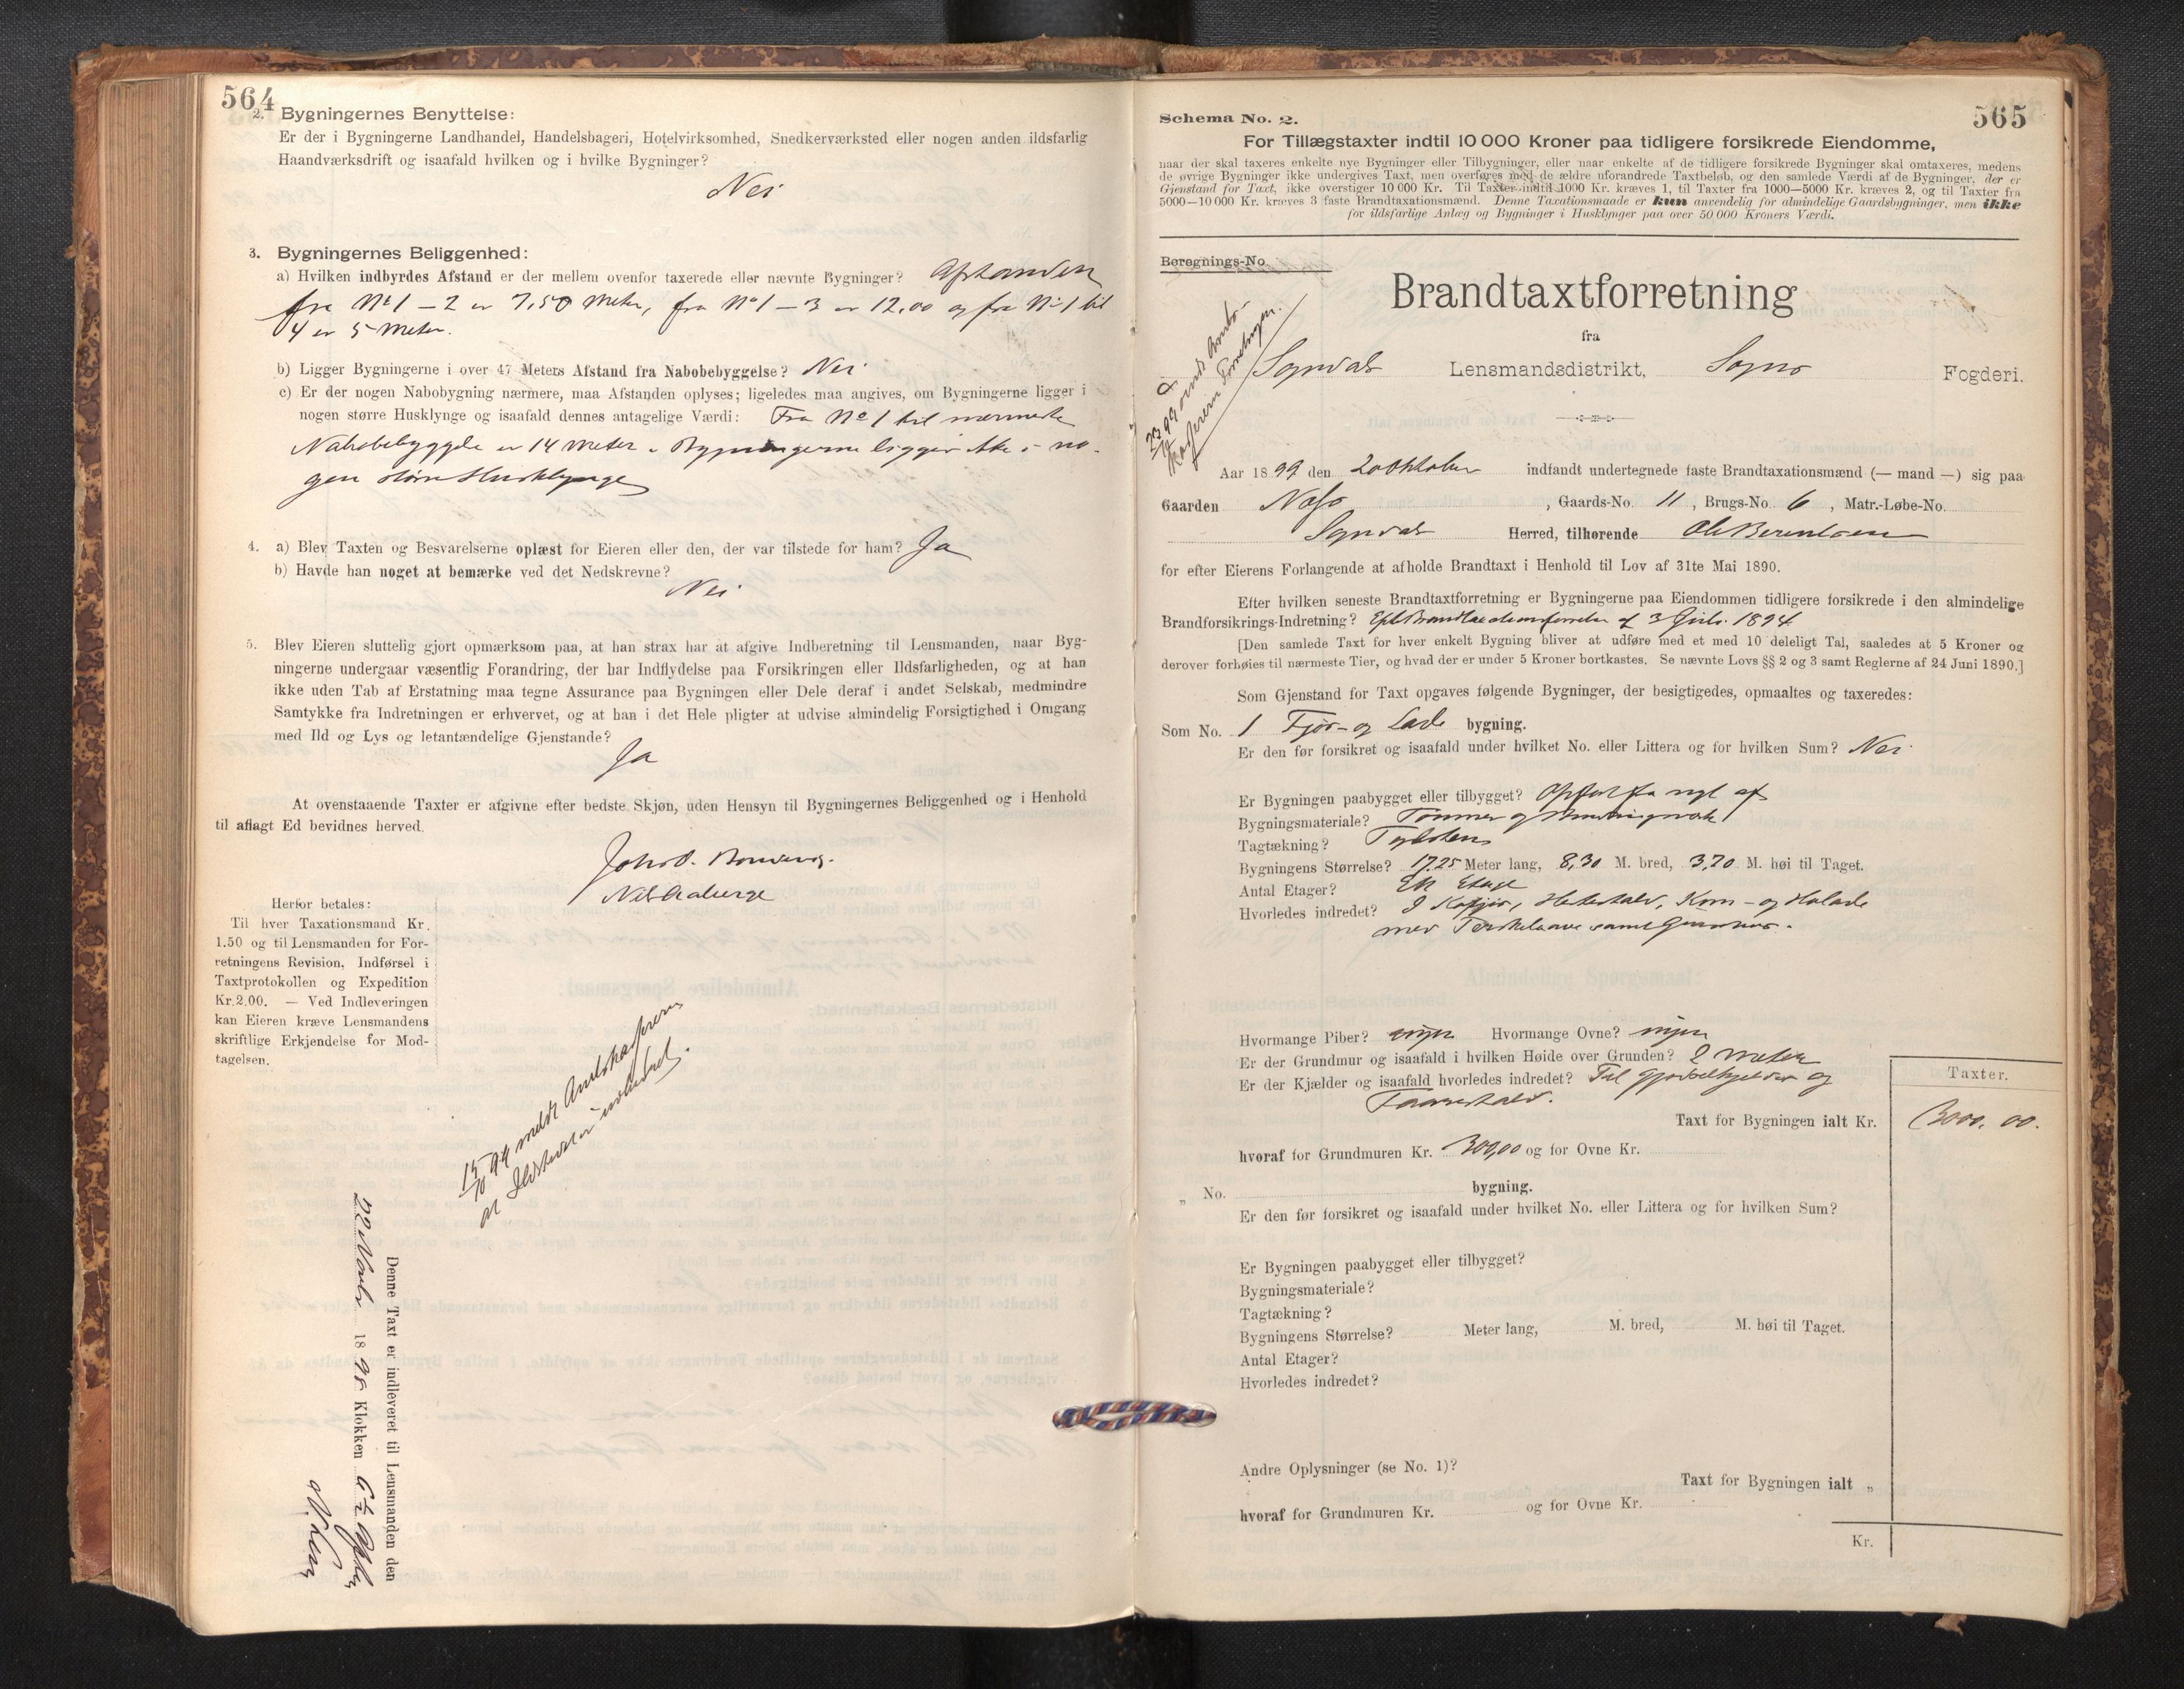 564
2. Bygningernes Benyttelse:
Er der i Bygningerne Landhandel, Handelsbageri, Hotelvirksomhed, Snedkerværksted eller nogen anden ildsfarlig
Haandværksdrift og isaafald hvilken og i hvilke Bygninger?
Nei
3. Bygningernes Beliggenhed:
a) Hvilken indbyrdes Afstand er der mellem ovenfor taxerede eller nævnte Bygninger? Afstanden
fra No 1 – 2 er 7,50 Meter, fra No 1 – 3 er 12,00 og fra No 1 til
4 er 5 Meter.
b) Ligger Bygningerne i over 47 Meters Afstand fra Nabobebyggelse? Nei
c) Er der nogen Nabobygning nærmere, maa Afstanden oplyses; ligeledes maa angives, om Bygningerne ligger i
nogen større Husklynge og isaafald dennes antagelige Værdi: Fra No 1 til nærmeste
Nabobebyggelse er 14 Meter. Bygningerne ligger ikke i no-
gen større Husklynge
4. a) Blev Taxten og Besvarelserne oplæst for Eieren eller den, der var tilstede for ham? Ja
b) Havde han noget at bemærke ved det Nedskrevne?
Nei
5. Blev Eieren sluttelig gjort opmærksom paa, at han strax har at afgive Indberetning til Lensmanden, naar Byg-
ningerne undergaar væsentlig Forandring, der har Indflydelse paa Forsikringen eller Ildsfarligheden, og at han
ikke uden Tab af Erstatning maa tegne Assurance paa Bygningen eller Dele deraf i andet Selskab, medmindre
Samtykke fra Indretningen er erhvervet, og at han i det Hele pligter at udvise almindelig Forsigtighed i Omgang
med Ild og Lys og letantændelige Gjenstande?
Ja
At ovenstaaende Taxter er afgivne efter bedste Skjøn, uden Hensyn til Bygningernes Beliggenhed og i Henhold
til aflagt Ed bevidnes herved.
Herfor betales:
Til hver Taxationsmand Kr.
1.50 og til Lensmanden for For-
retningens Revision, Indførsel i
Taxtprotokollen og Expedition
Kr. 2.00. — Ved Indleveringen
kan Eieren kræve Lensmandens
skriftlige Erkjendelse for Mod-
tagelsen.
15/10 99 meldt
at Ildstedet er
Denne Taxt er indleveret til Lensmanden den
22 Novbr. 1898 Klokken 6½
565
Schema No. 2.
For Tillægstaxter indtil 10 000 Kroner paa tidligere forsikrede Eiendomme,
naar der skal taxeres enkelte nye Bygninger eller Tilbygninger, eller naar enkelte af de tidligere forsikrede Bygninger skal omtaxeres, medens
de øvrige Bygninger ikke undergives Taxt, men overføres med de ældre uforandrede Taxtbeløb, og den samlede Værdi af de Bygninger, der er
Gjenstand for Taxt, ikke overstiger 10 000 Kr. Til Taxter indtil 1000 Kr. kræves 1, til Taxter fra 1000—5000 Kr. kræves 2, og til Taxter fra
5000—10 000 Kr. kræves 3 faste Brandtaxationsmænd. Denne Taxationsmaade er kun anvendelig for almindelige Gaardsbygninger, men ikke
for ildsfarlige Anlæg og Bygninger i Husklynger paa over 50 000 Kroners Værdi.
Beregnings-No.
Brandtaxtforretning
fra
Sogndal Lensmandsdistrikt, Sogns Fogderi.
Aar 1899 den 20 Oktober indfandt undertegnede faste Brandtaxationsmænd (— mand —) sig paa
Gaarden , Gaards-No. 11, Brugs-No. 6, Matr.-Løbe-No.
Sogndal Herred, tilhørende Ole Berentsen
for efter Eierens Forlangende at afholde Brandtaxt i Henhold til Lov af 31te Mai 1890.
Efter hvilken seneste Brandtaxtforretning er Bygningerne paa Eiendommen tidligere forsikrede i den almindelige
Brandforsikrings-Indretning? af 3 1894
[Den samlede Taxt for hver enkelt Bygning bliver at udføre med et med 10 deleligt Tal, saaledes at 5 Kroner og
derover forhøies til nærmeste Tier, og hvad der er under 5 Kroner bortkastes. Se nævnte Lovs §§ 2 og 3 samt Reglerne af 24 Juni 1890.]
Som Gjenstand for Taxt opgaves følgende Bygninger, der besigtigedes, opmaaltes og taxeredes:
Som No. 1 Fjøs- og Lade bygning.
Er den før forsikret og isaafald under hvilket No. eller Littera og for hvilken Sum? Nei
Er Bygningen paabygget eller tilbygget? Opført fra nyt af
Bygningsmateriale? Tømmer og Bindingsværk
Tagtækning? Taglsten
Bygningens Størrelse? 17,25 Meter lang, 8,30 M. bred, 3,70 M. høi til Taget.
Antal Etager? En Etage
Hvorledes indredet? I Kofjøs, Hestestald, Korn- og Hølade
med Tærskelaave samt
Hvormange Piber? ingen Hvormange Ovne? ingen
Er der Grundmur og isaafald i hvilken Høide over Grunden? 2 Meter
Er der Kjælder og isaafald hvorledes indredet? Til Gjødselkjelder og
Faarestald.
Taxter.
Taxt for Bygningen ialt Kr. 3000.00.
hvoraf for Grundmuren Kr. 300,00 og for Ovne Kr.
„ No. bygning.
Er den før forsikret og isaafald under hvilket No. eller Littera og for hvilken Sum?
Er Bygningen paabygget eller tilbygget?
Bygningsmateriale?
Tagtækning?
Bygningens Størrelse? Meter lang, M. bred, M. høi til Taget.
Antal Etager?
Hvorledes indredet?
Andre Oplysninger (se No. 1)?
Taxt for Bygningen ialt „
hvoraf for Grundmuren Kr. og for Ovne Kr.
Kr.